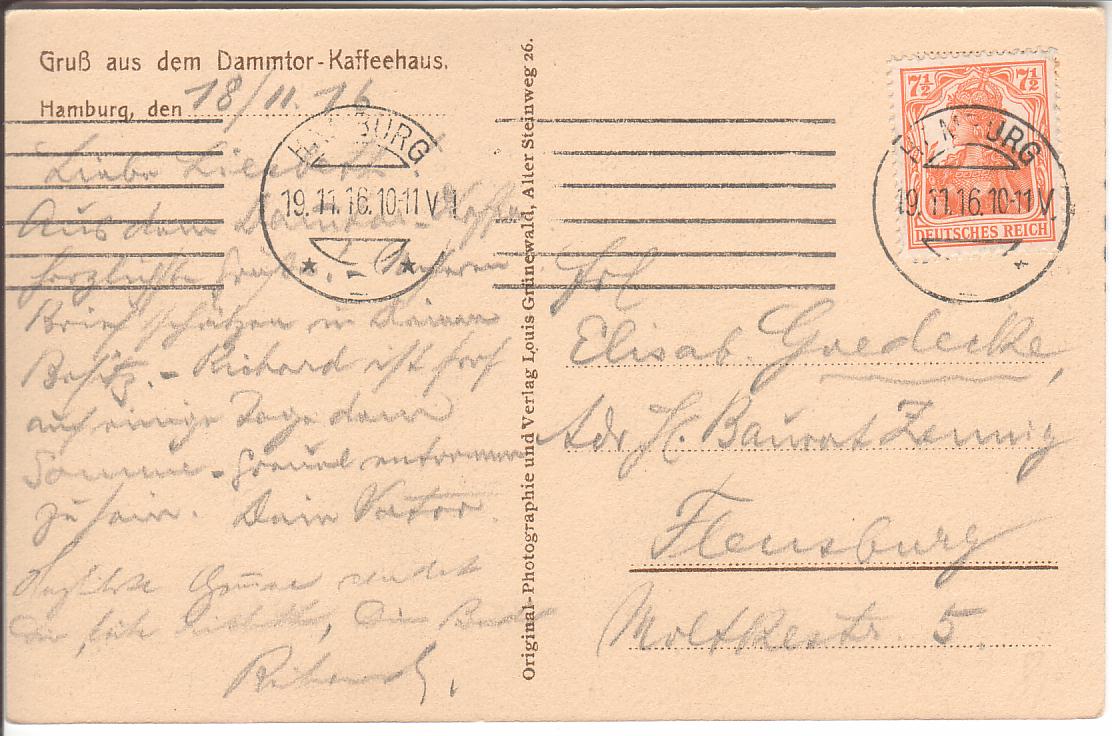 Gruß aus dem Dammtor-Kaffeehaus.
Hamburg, den 18/11. 16
Liebe Liesbeth!
Aus dem Damtor-Kaffee
herzlichste Grüße. - Unseren
Brief schätzen in Deinem
Besitz. - Richard ist froh
auf einige Tage dem
Somme-Greuel entronnen
zu sein. Dein Vater.
Herzliche Grüsse sendet
Dir, liebe Dein Bruder
Richard.
HAMBURG
19.11.16.10-11 V. 1
Original-Photographie und Verlag Louis Grünewald, Alter Steinweg 26.
7½ 7½
DEUTSCHES REICH
HAMBURG
19.11.16.10-11 V.
Frl
Elisab. Goedecke,
Adr H. Baurat Zennig
Flensburg
Moltkestr. 5.